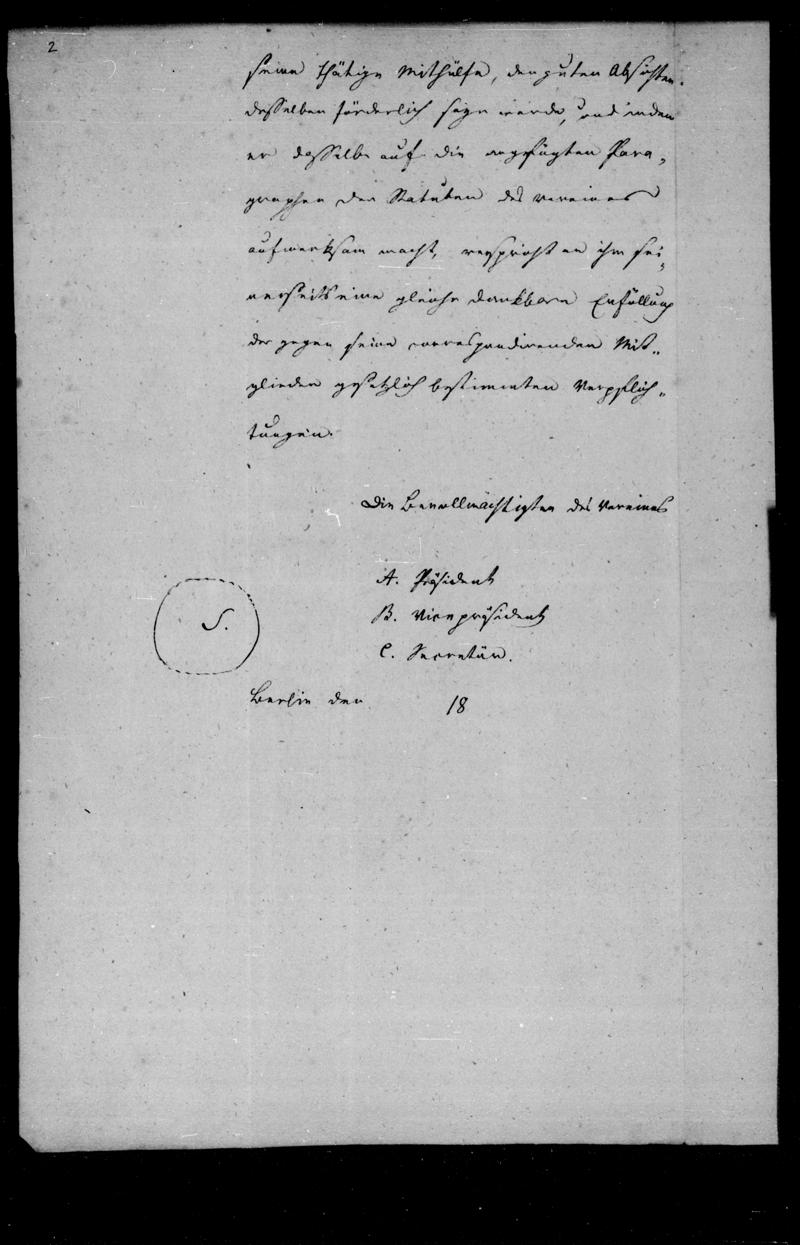 2
seine thätige Mithülfe, den guten Absichten
desselben förderlich seyn werde, und indem
er dasselbe auf die angefügten Para-
graphen der Statuten des Vereines
aufmerksam macht, verspricht er ihm sei-
nerseits eine gleiche dankbare Erfüllung
der gegen seine correspondirenden Mit-
glieder gesetzlich bestimmten Verpflich-
tungen.
Die Bevollmächtigten des Vereines
A. Präsident
B. Vicepräsident
S.
C. Secretär.
Berlin den 18